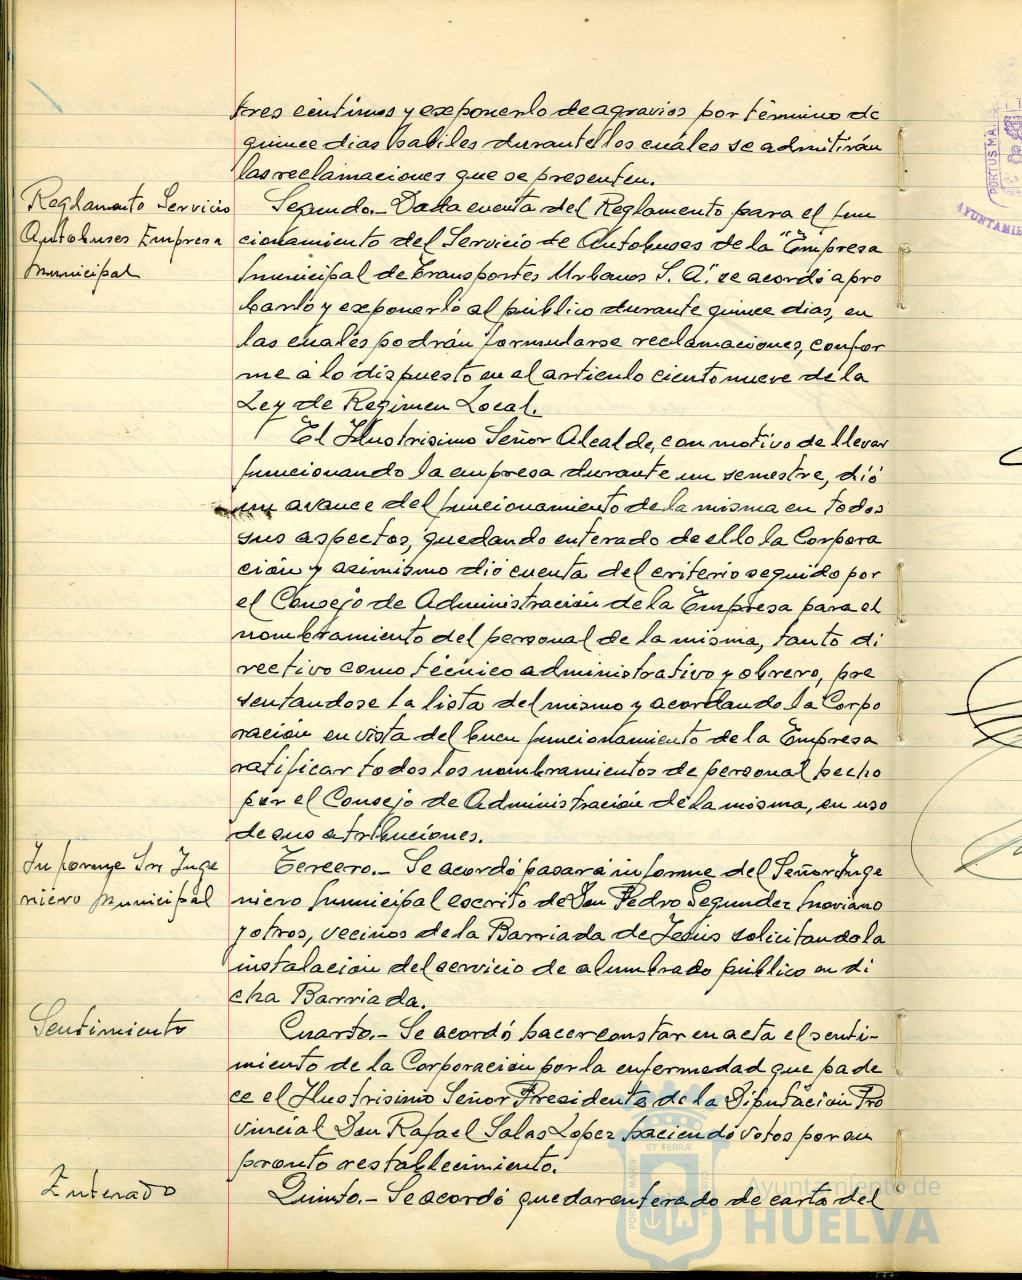 tres céntimos y exponerlo de agravios por término de
quince dias habiles durante los cuáles se admitirán
las reclamaciones que se presenten.
Reglamento Servicio
Autobuses Empresa
Municipal
Segundo.- Dada cuenta del Reglamento para el fun
cionamiento del Servicio de Autobuses de la "Empresa
Municipal de Transportes Urbanos S. A." se acordó apro
barlo y exponerlo al público durante quince dias, en
las cuales podrán formularse reclamaciones, confor
me a lo dispuesto en el articulo ciento nueve de la
Ley de Regimen Local.
El Ilustrisimo Señor Alcalde, con motivo de llevar
funcionando la empresa durante un semestre, dió
un avance del funcionamiento de la misma en todos
sus aspectos, quedando enterado de ello la Corpora
ción y asimismo dió cuenta del criterio seguido por
el Consejo de Administración de la Empresa para el
nombramiento del personal de la misma, tanto di
rectivo como técnico administrativo y obrero, pre
sentandose la lista del mismo y acordando la Corpo
ración en vista del buen funcionamiento de la Empresa
ratificar todos los nombramientos de personal hecho
por el Consejo de Administración de la misma, en uso
de sus atribuciones.
Informe Sr. Inge
niero Municipal
Tercero.- Se acordó pasar a informe del Señor Inge
niero Municipal escrito de Don Pedro Segundez Moviano
y otros, vecinos de la Barriada de Jesús solicitando la
instalación del servicio de alumbrado público en di
cha Barriada.
Sentimiento
Cuarto.- Se acordó hacer constar en acta el senti-
miento de la Corporación por la enfermedad que pade
ce el Ilustrisimo Señor Presidente de la Diputación Pro
vincial Don Rafael Salas Lopez haciendo votos por su
pronto restablecimiento.
Enterado
Quinto.- Se acordó quedar enterado de carta del
PORTUS MARIS ET TERRÆ CUSTODIA
Ayuntamiento de
HUELVA
PORTUS MA
AYUNTAMIE